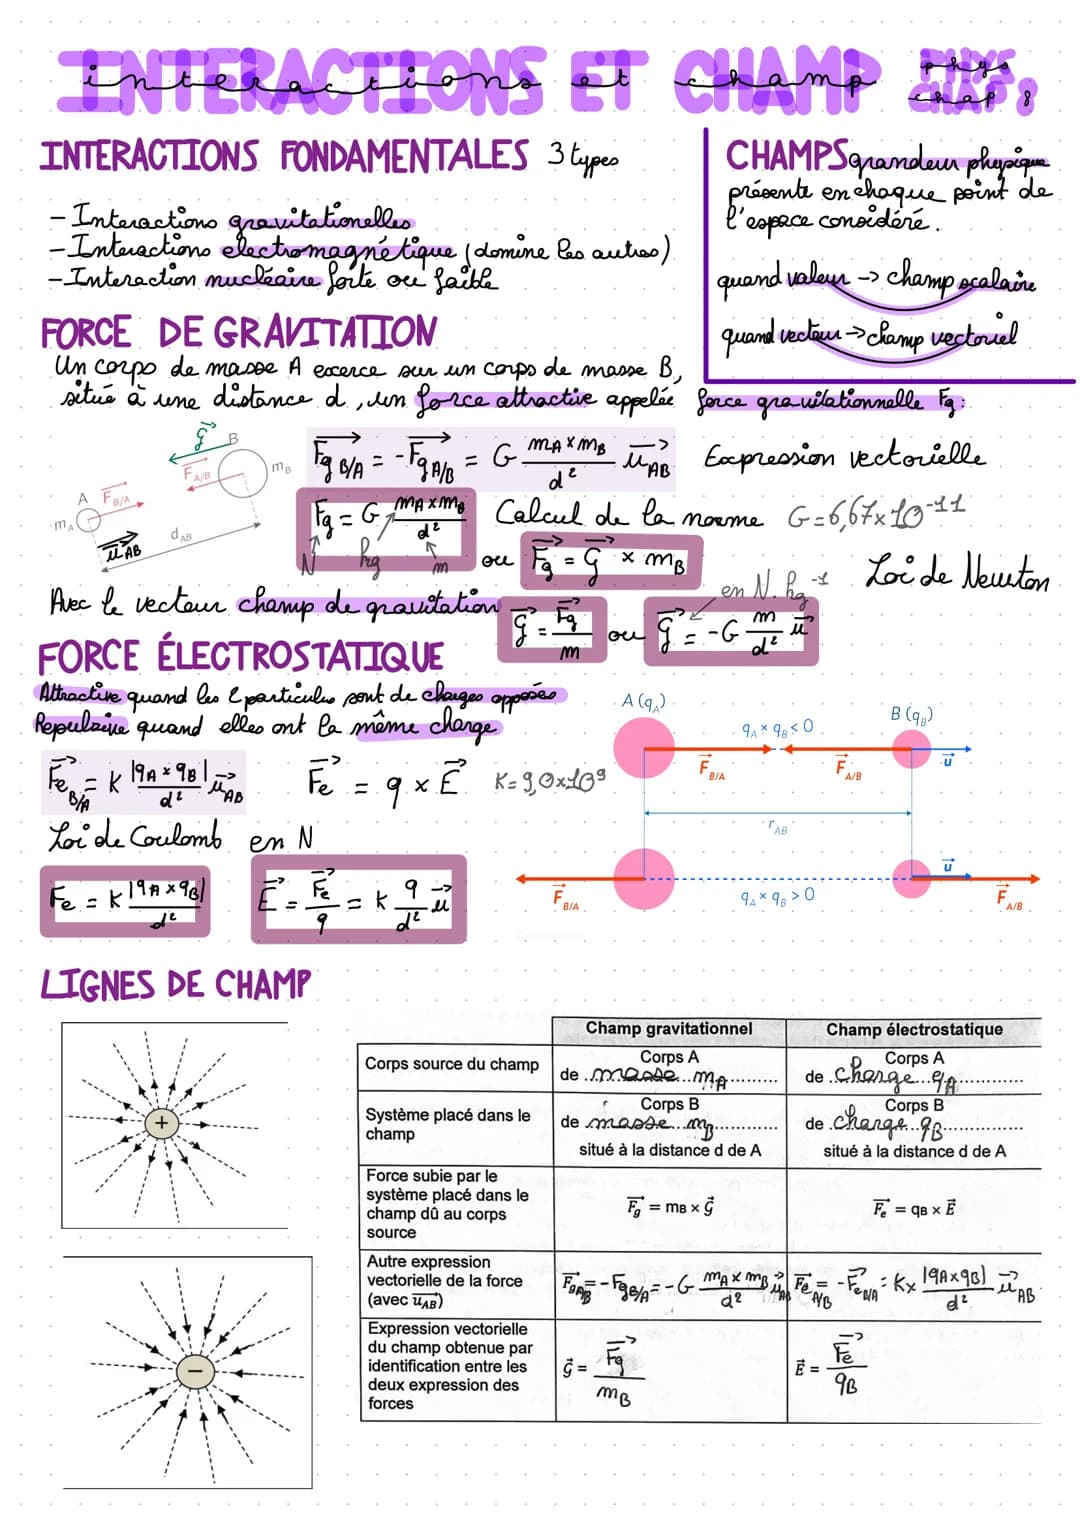 INTERACTIONS ET CHAMP
interactions et champ
PHYS CHAP 8
phys chap 8
INTERACTIONS FONDAMENTALES 3 types
- Interactions gravitationelles
- Interactions electromagnétique (domine les autres)
- Interaction nucléaire forte ou faible
CHAMPS grandeur physique
présente en chaque point de
l'espace considéré.
quand valeur -> champ scalaire
quand vecteur -> champ vectoriel
FORCE DE GRAVITATION
Un corps de masse A excerce sur un corps de masse B,
situé à une distance d, un force attractive appelée force gravitationnelle Fg:
g⃗ B
F⃗A/B
mB
A F⃗B/A
mA
dAB
u⃗AB
F⃗g B/A = -F⃗g A/B = G mA×mB/d² u⃗AB Expression vectorielle
Fg = G mA×mB/d² Calcul de la norme G=6,67×10⁻¹¹
N kg m
ou F⃗g = G⃗ × mB
Loi de Newton
Avec le vecteur champ de gravitation
G⃗ = F⃗g/m ou G⃗ = -G m/d² u⃗
en N.kg⁻¹
FORCE ÉLECTROSTATIQUE
Attractive quand les 2 particules sont de charges opposés
Repulsive quand elles ont la même charge
F⃗e B/A = K |qA×qB|/d² u⃗AB
F⃗e = q × E⃗ K=9,0×10⁹
Loi de Coulomb en N
Fe = K |qA×qB|/d²
E⃗ = F⃗e/q = K q/d² u⃗
A (qA)
B (qB)
qA × qB < 0
F⃗B/A
F⃗A/B
u⃗
rAB
u⃗
F⃗B/A
qA × qB > 0
F⃗A/B
LIGNES DE CHAMP
+
−
Champ gravitationnel
Champ électrostatique
Corps source du champ
Corps A
de masse mA
Corps A
de charge qA
Système placé dans le
champ
Corps B
de masse mB
situé à la distance d de A
Corps B
de charge qB
situé à la distance d de A
Force subie par le
système placé dans le
champ dû au corps
source
F⃗g = mB x G⃗
F⃗e = qB x E⃗
Autre expression
vectorielle de la force
(avec u⃗AB)
F⃗g A/B = -F⃗g B/A = -G mA×mB/d² u⃗AB
F⃗e A/B = -F⃗e B/A = K× |qA×qB|/d² u⃗AB
Expression vectorielle
du champ obtenue par
identification entre les
deux expression des
forces
G⃗ = F⃗g/mB
E⃗ = F⃗e/qB